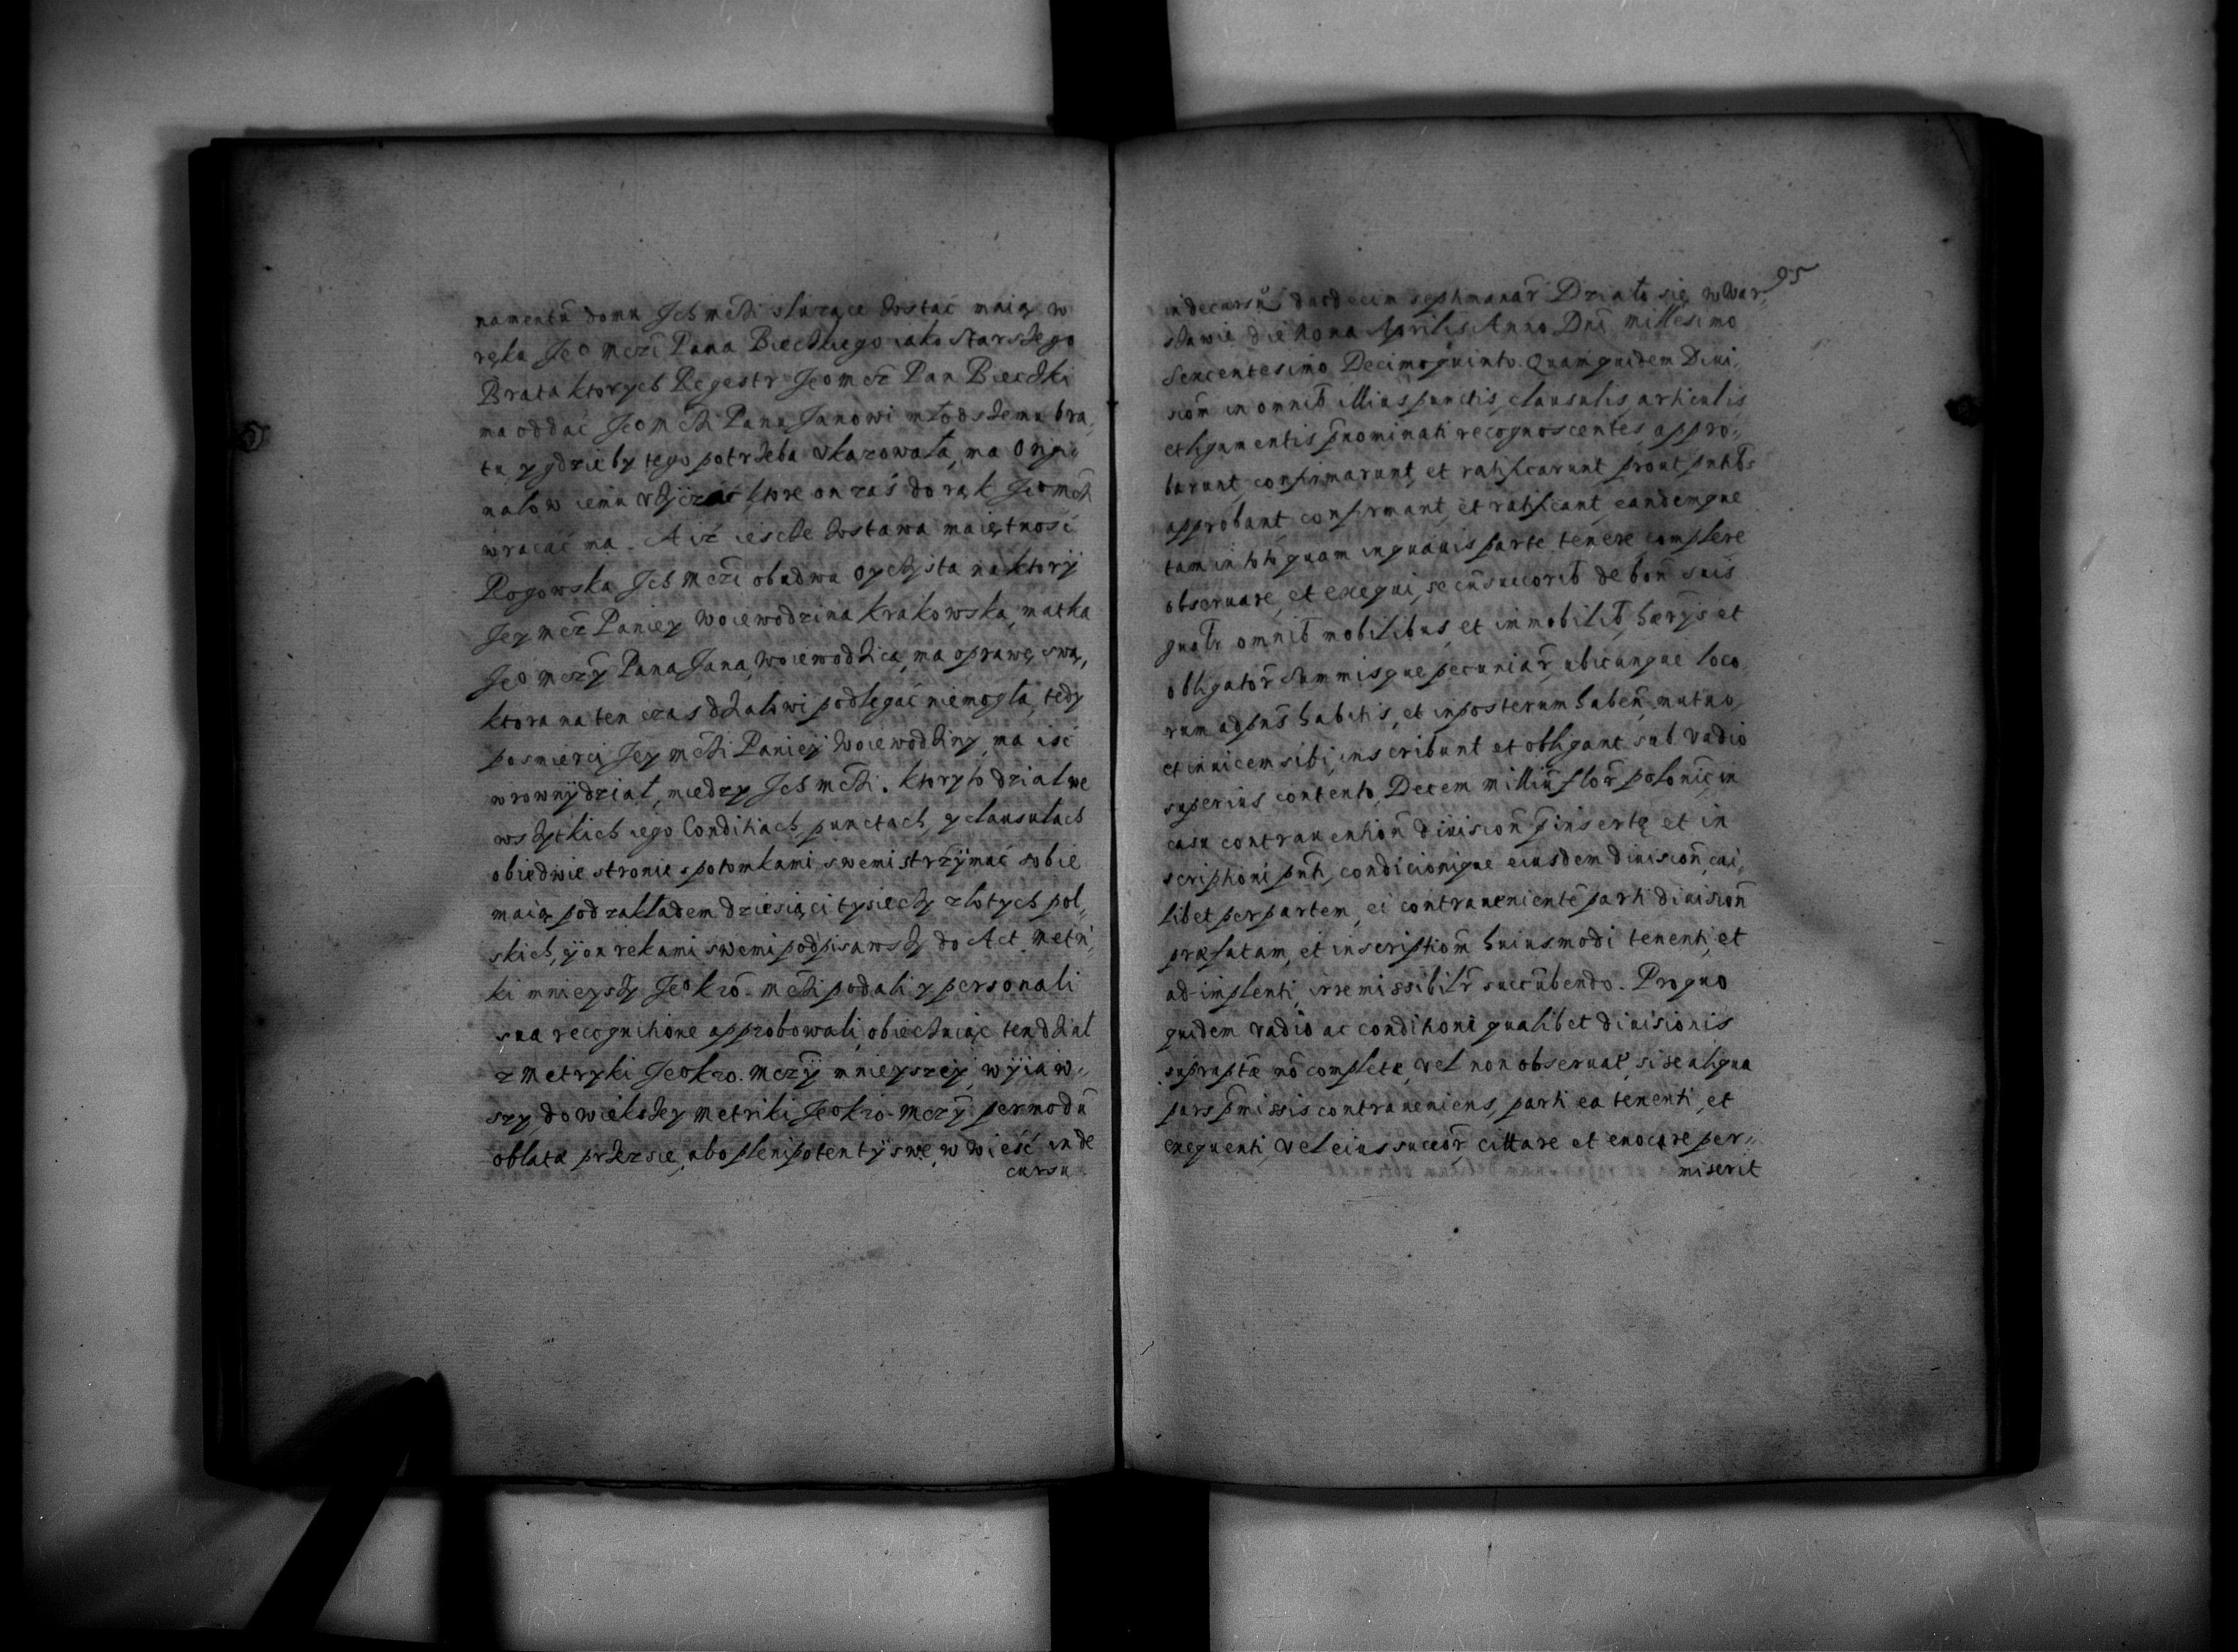 namentū domu Jch mczi służące dostać maią w
ręku Jeo Mczi Pana Bieczkiego iako Starszego
Brata ktorych Regestr Jeo mcz Pan Biecżki
ma oddać Jeo Mczi Panu Janowi młodszemu bra,
tu y gdzie by tego potrzeba vkazowała, ma Origi,
nałow iemu vżyczać ktore on zaś do rąk Jeo mczi
wracać ma. A iż ieszcze zostawa maiętność
Rogowska Jch Mczi obudwu oyczysta na ktorÿ
Jey mcz Paniey Woiewodzina Krakowska, matka
Jeo Mczÿ Pana Jana Woiewodzica, ma oprawę swą,
ktora na ten czas dżiałowi podlegać niemogła, tedy
po smierci Jey mczi Panieÿ Woiewodziny ma iść
w rownÿ dział, miedzy Jch mczi. Ktory to dział we
wszytkich iego Conditiach, punctach, y clausulach
obiedwie stronie s potomkami swemi strzÿmać sobie
maią pod zakładem dziesiąci tysiecży złotych pol,
skich, ÿ on rekami swemi podpisawszy do Act Metri,
ki mnieyszy Jeo kro. mczi podali y personali
sua recognitione approbowali, obiecuiąc ten dział
z Metryki Jeo kro. Mczÿ mnieyszeÿ wÿiaw,
szy do wiekszey Metriki Jeo kro. Mczÿ per modū
oblatæ przez sie, abo plenipotentÿ swe, w wieść in de
cursu
95
in decursū duodecim septimanar̄ Działo się w War,
szawie die nona Aprilis Anno Dni millesimo
Sexcentesimo Decimo quinto. Quam quidem Diui,
sion̄ in omnib illius punctis, clausulis, articulis
et ligamentis p̄nominati recognoscentes, appro,
barunt, confirmarunt, et ratificarunt prout pntib
approbant confirmant, et ratificant, eandemque
tam in toto quam in quauis parte tenere complere
obseruare, et exequi, se cū succorib de bon̄ suis
gnalr omnib mobilibus, et immobilib, hærÿs et
obligator̄ Summisque pecuniar̄, ubicunque loco,
rum ad pns habitis, et in posterum haben̄, mutuo
et inuicem sibi inscribunt et obligant sub vadio
superius contento, Decem milliū flor̄ polonic, in
casu contrauention̄ diuision̄ p̄insertę et in
scriptioni pnti, condicionique eiusdem diuision̄, cui,
libet per partem, ei contrauenientē parti diuision̄
præfatam, et inscription̄ huiusmodi tenenti, et
ad implenti, irremissibilr̄ succūbendo. Pro quo
quidem vadio ac conditioni qualibet diuisionis
supraptæ nō completæ, vel non obseruat̄, si se aliqua
pars p̄missis contraueniens, parti ea tenenti, et
exequenti, vel eius succor̄ cittare et euocare per,
miserit